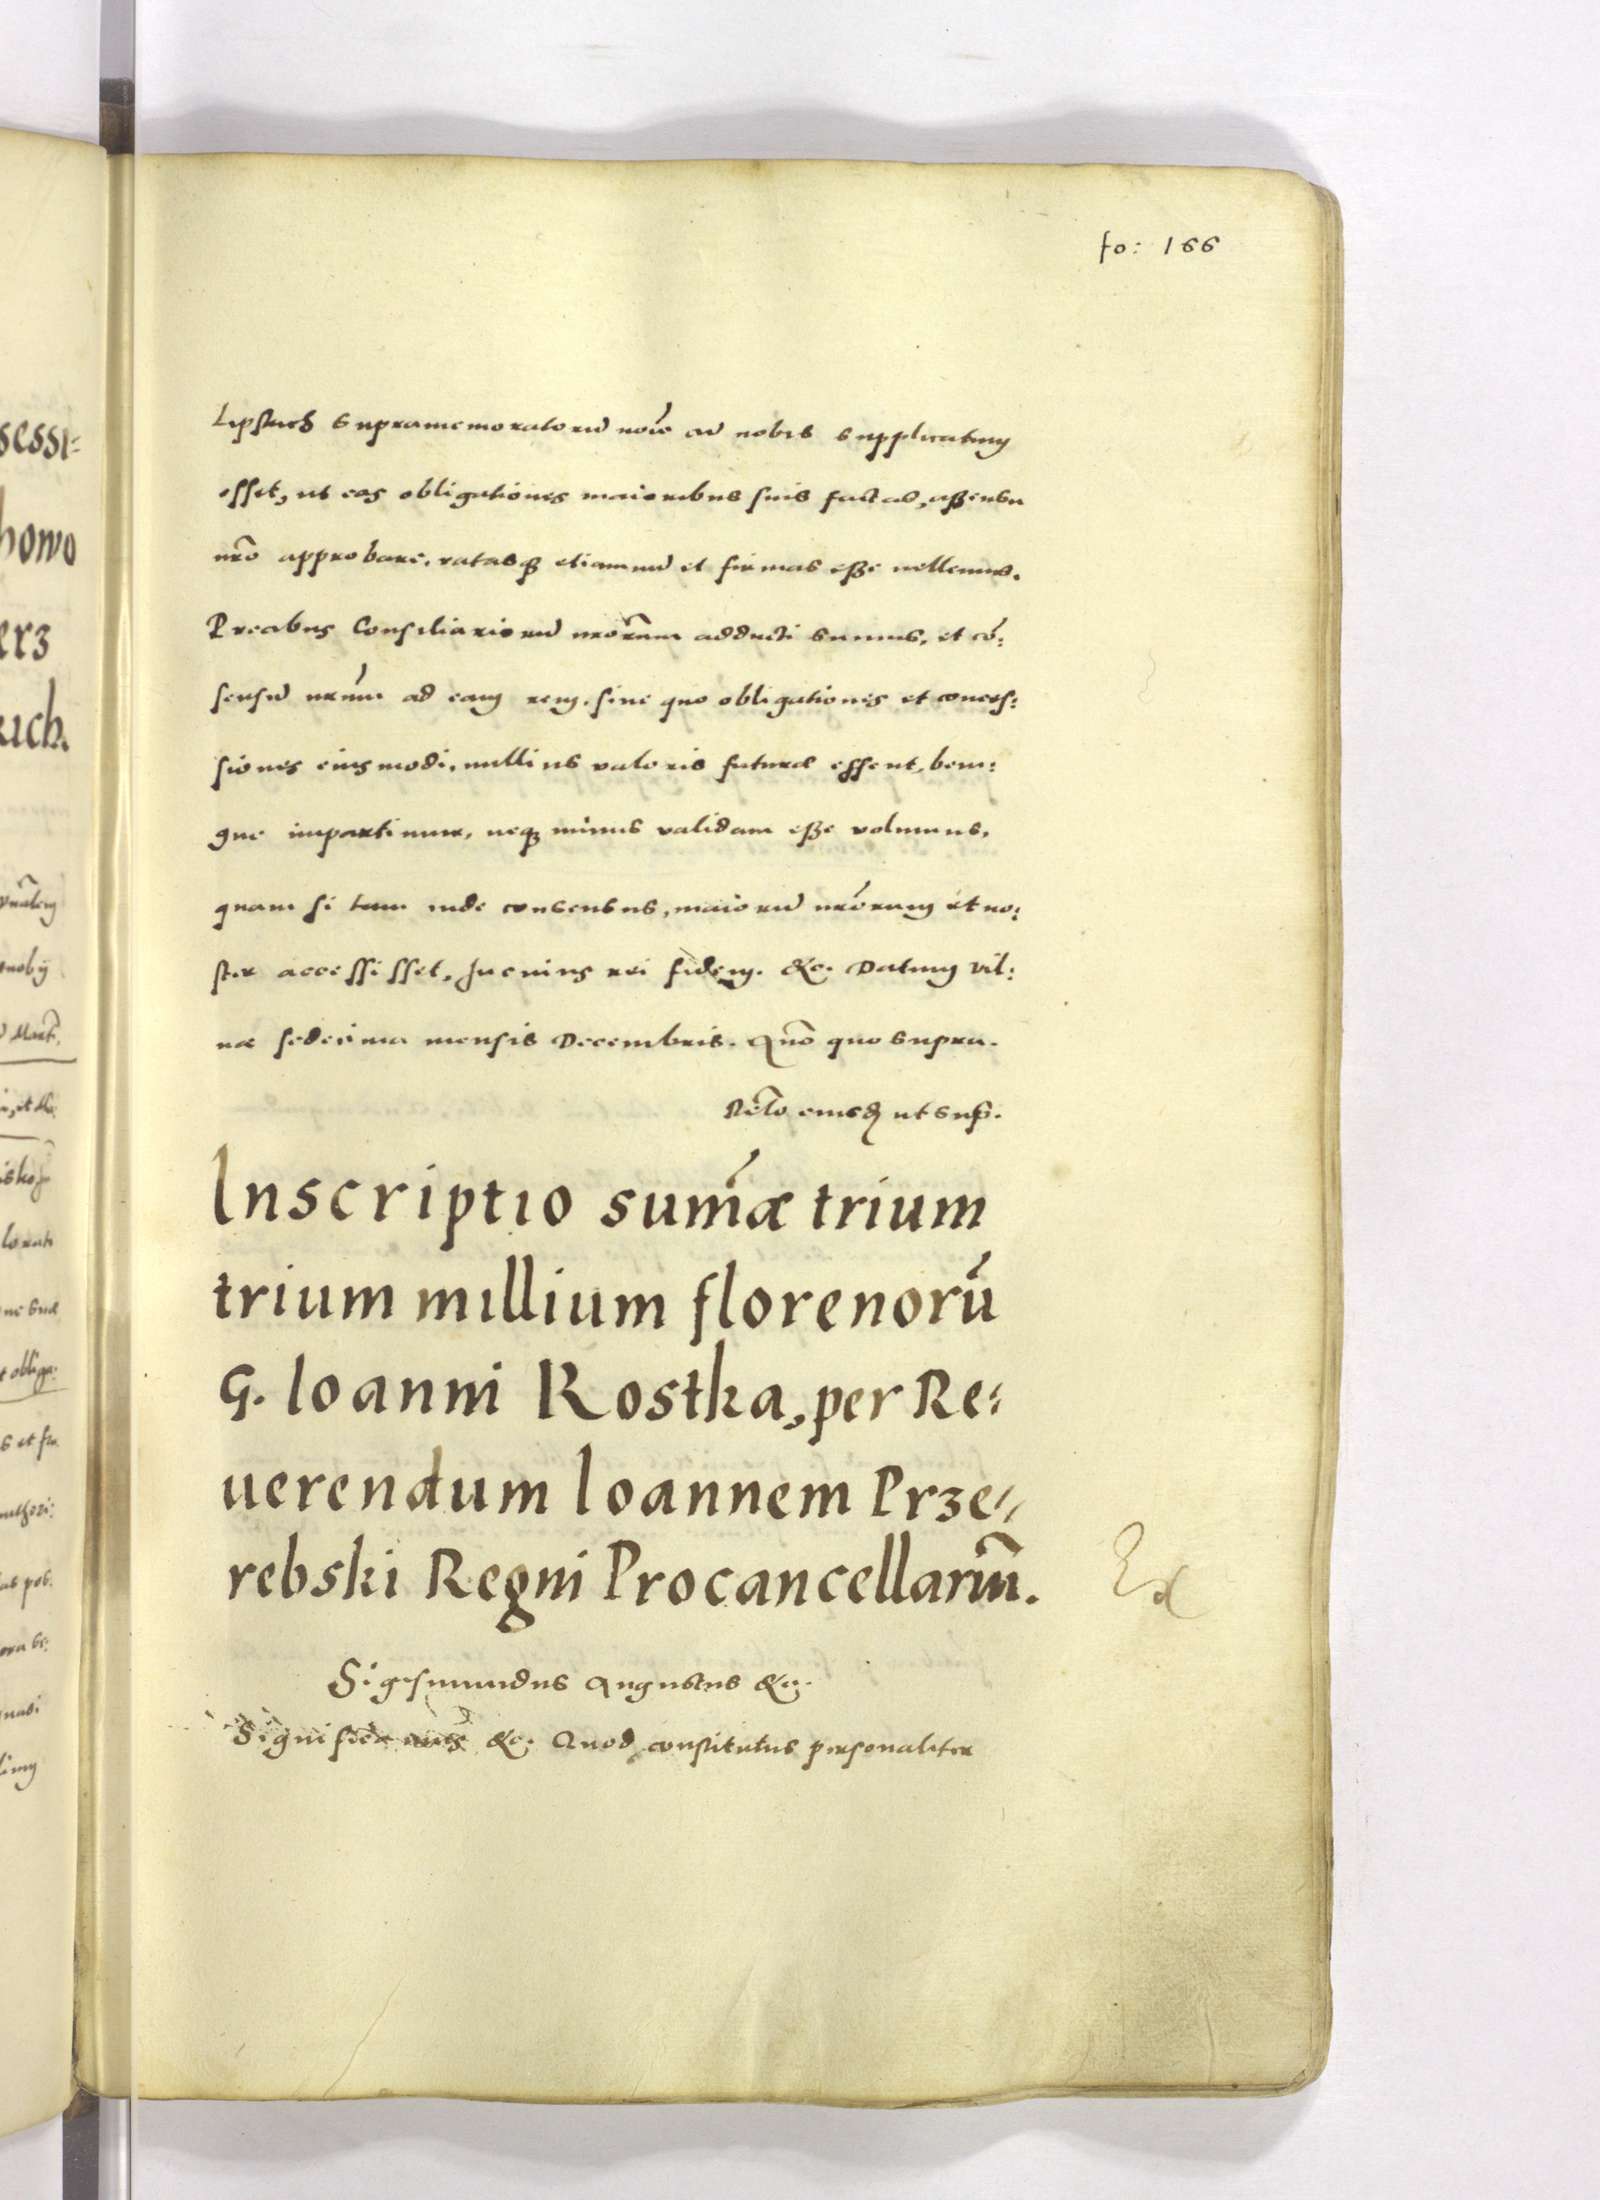 fo: 166
Lipstich supramemoratorũ noĩe cũ nobis supplicatum
esset, ut eas obligationes maioribus suis factas, assensu
nrõ approbare, ratasq; etiamnũ et firmas esse vellemus.
Precibus Consiliariorũ nrõrum adducti sumus, et cõ:
sensũ nrũm ad eam rem, sine quo obligationes et conces:
siones eiusmodi, nullius valoris futuræ essent, beni:
gne impartimur, neq; minus validam esse volumus,
quam si tum inde consensus, maiorũ nrõrum et no:
ster accessisset, In cuius rei fidem. &c. Datum Vil:
næ sedecima mensis Decembris. Anõ quo supra.
Relõ eiusd ut sup.
Inscriptio sum̃æ trium
trium millium florenorũ
G. Ioanni Rostka, per Re:
uerendum Ioannem Prze:
rebski Regni Procancellariũm.
Ex
Sigismundus Augustus &c.
Significamus &c. Quod constitutus personaliter
sessi:
howo
erz
rich.